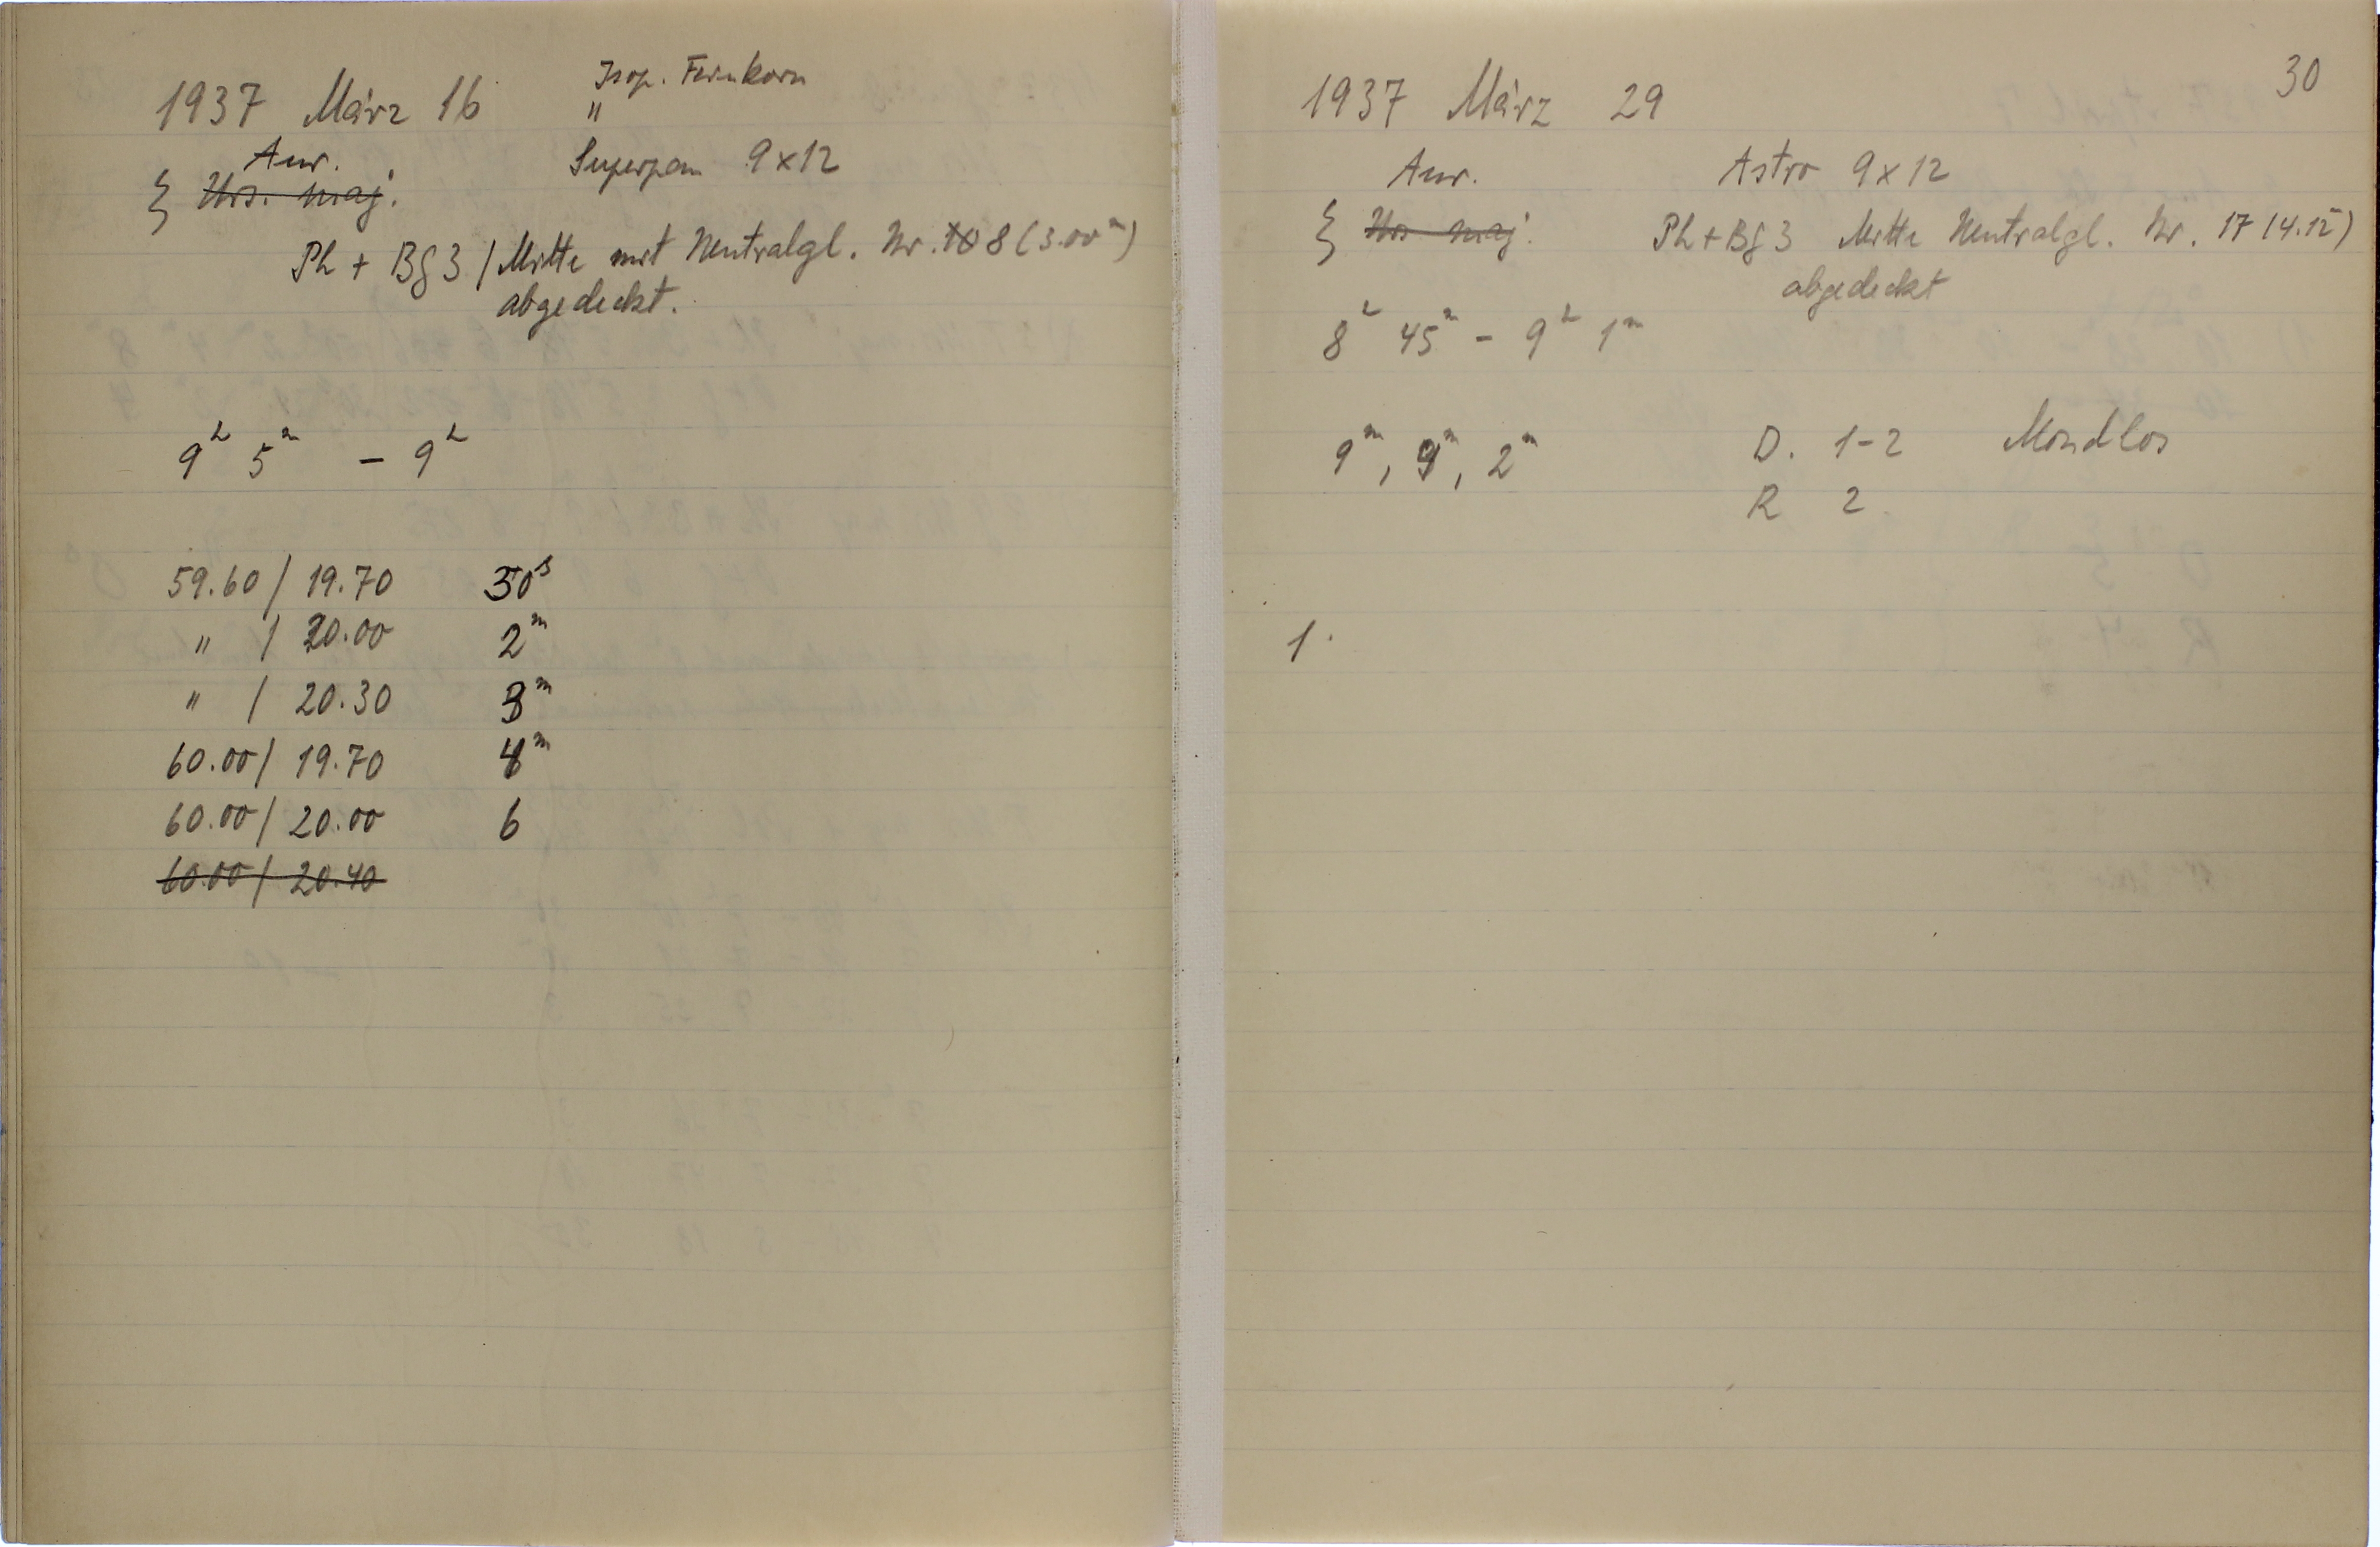 1937 März 16
Isop. Feinkorn
"
Aur.
Superpan 9x12
ξ Urs. maj.
Ph + Bg 3 / Mitte mit Neutralgl. Nr. 10 8 (3.00ᵐ)
abgedeckt.
9ʰ 5ᵐ – 9ʰ
59.60 / 19.70 30ˢ
" / 20.00 2ᵐ
" / 20.30 3ᵐ
60.00 / 19.70 4ᵐ
60.00 / 20.00 6
60.00 / 20.40
30
1937 März 29
Aur. Astro 9x12
ξ Urs maj. Ph + Bg 3 Mitte Neutralgl. Nr. 17 (4.15)
abgedeckt
8ʰ 45ᵐ – 9ʰ 1ᵐ
9ᵐ, 9ᵐ, 2ᵐ D. 1-2 Mondlos
R 2
1.